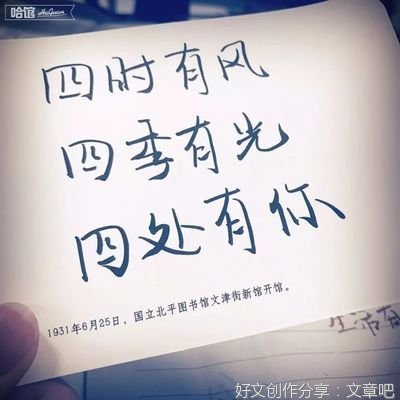 哈馆 HaGuan
四时有风
四季有光
四处有你
1931年6月25日，国立北平图书馆文津街新馆开馆。
生活有
好文创作分享：文章吧